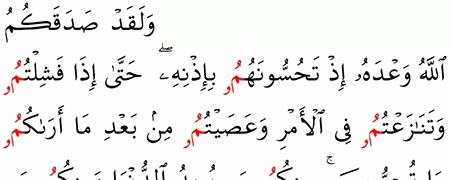 وَلَقَدْ صَدَقَكُمُ
اللَّهُ وَعْدَهُۥ إِذْ تَحُسُّونَهُمُۥ بِإِذْنِهِۦۖ حَتَّىٰ إِذَا فَشِلْتُمُۥ
وَتَنَٰزَعْتُمُۥ فِي ٱلْأَمْرِ وَعَصَيْتُمُۥ مِنۢ بَعْدِ مَا أَرَىٰكُمُۥ